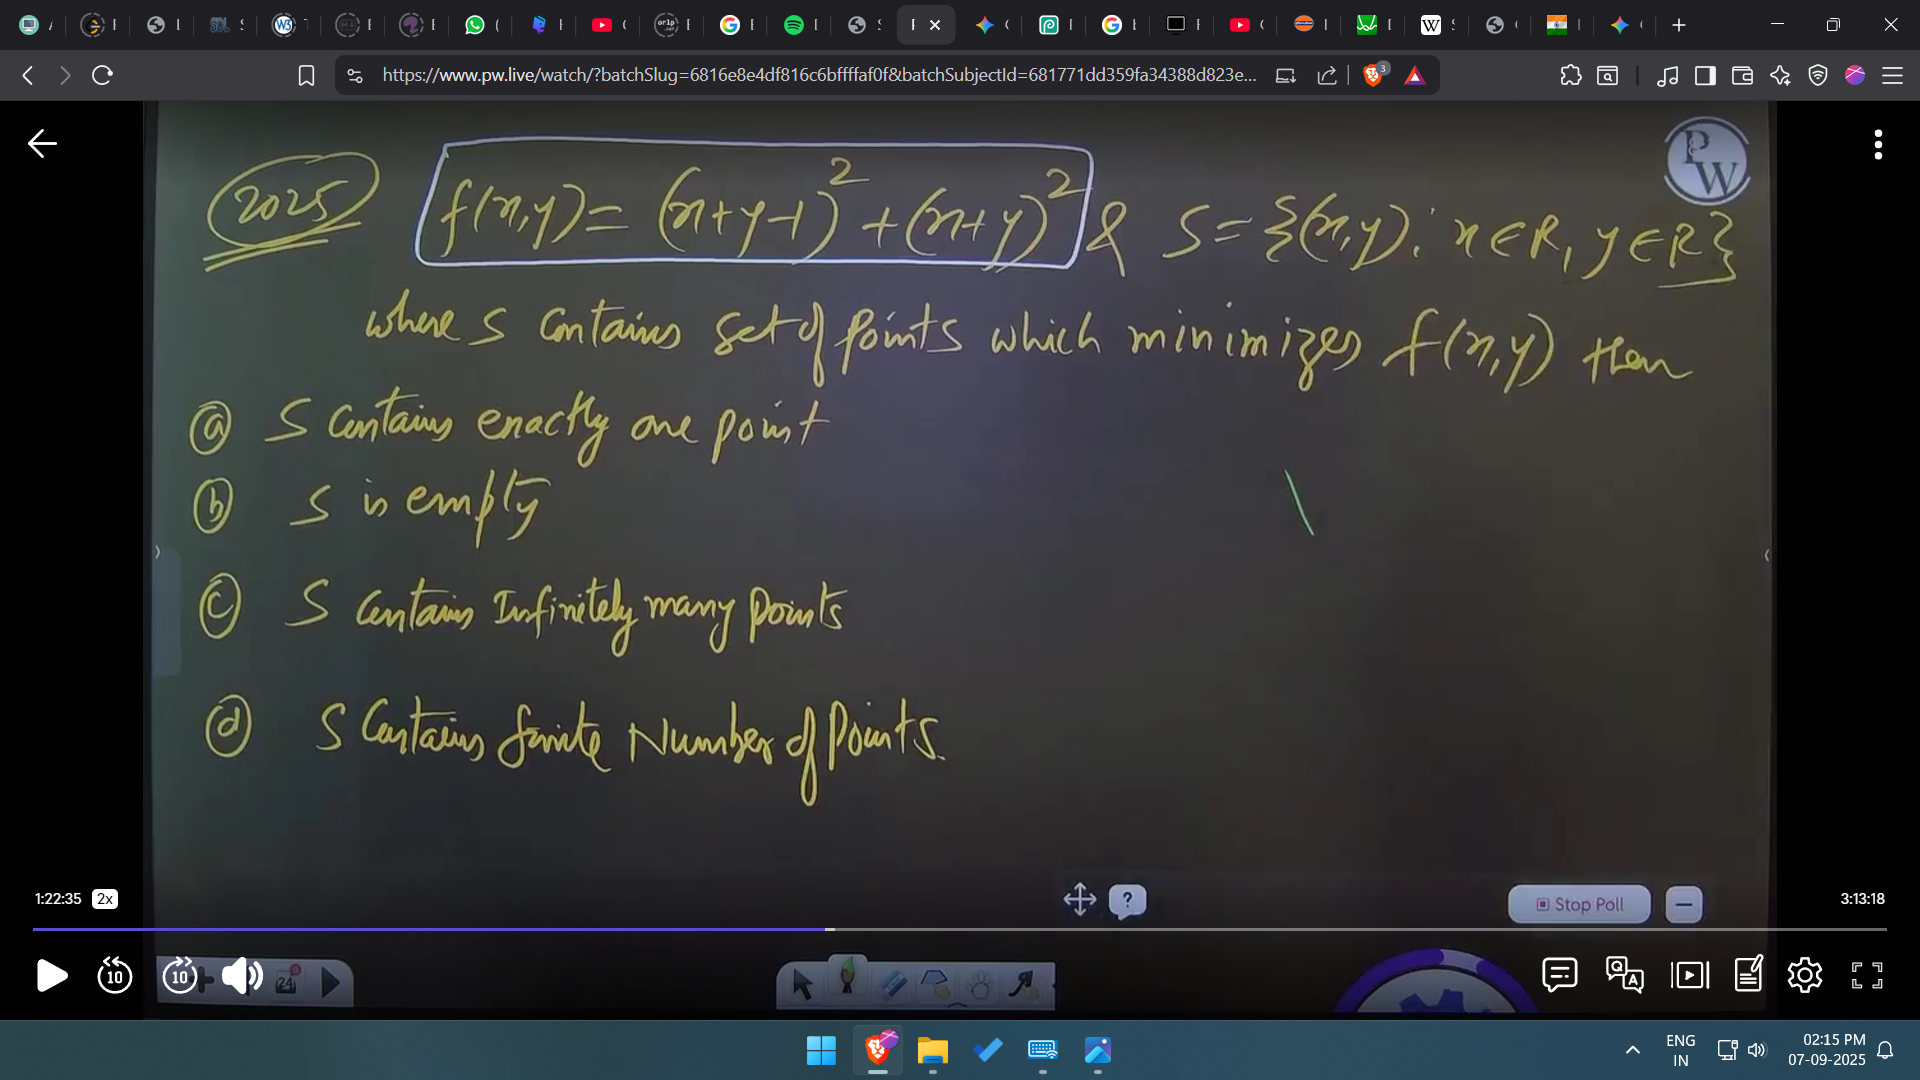 https://www.pw.live/watch/?batchSlug=6816e8e4df816c6bffffaf0f&batchSubjectId=681771dd359fa34388d823e...
3
PW
2025 f(x,y) = (x+y-1)² + (x+y)² & S = {(x,y): x∈R, y∈R}
where S contains set of points which minimizes f(x,y) then
ⓐ S contains exactly one point
ⓑ S is empty
ⓒ S contains Infinitely many points
ⓓ S contains finite Number of Points.
1:22:35 2x
3:13:18
? Stop Poll
10 10 24
ENG
IN
02:15 PM
07-09-2025